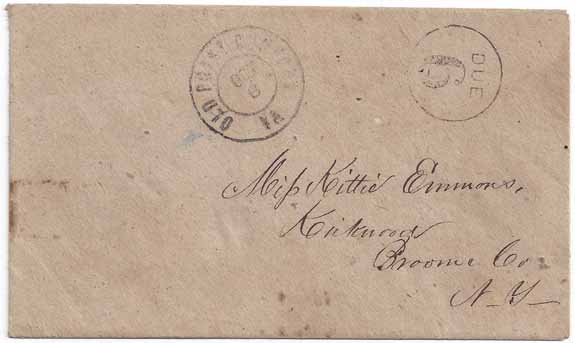 OLD POINT COMFORT
VA
DUE
Miss Kittie Emmons,
Kirkwood
Broome Co
N-Y-